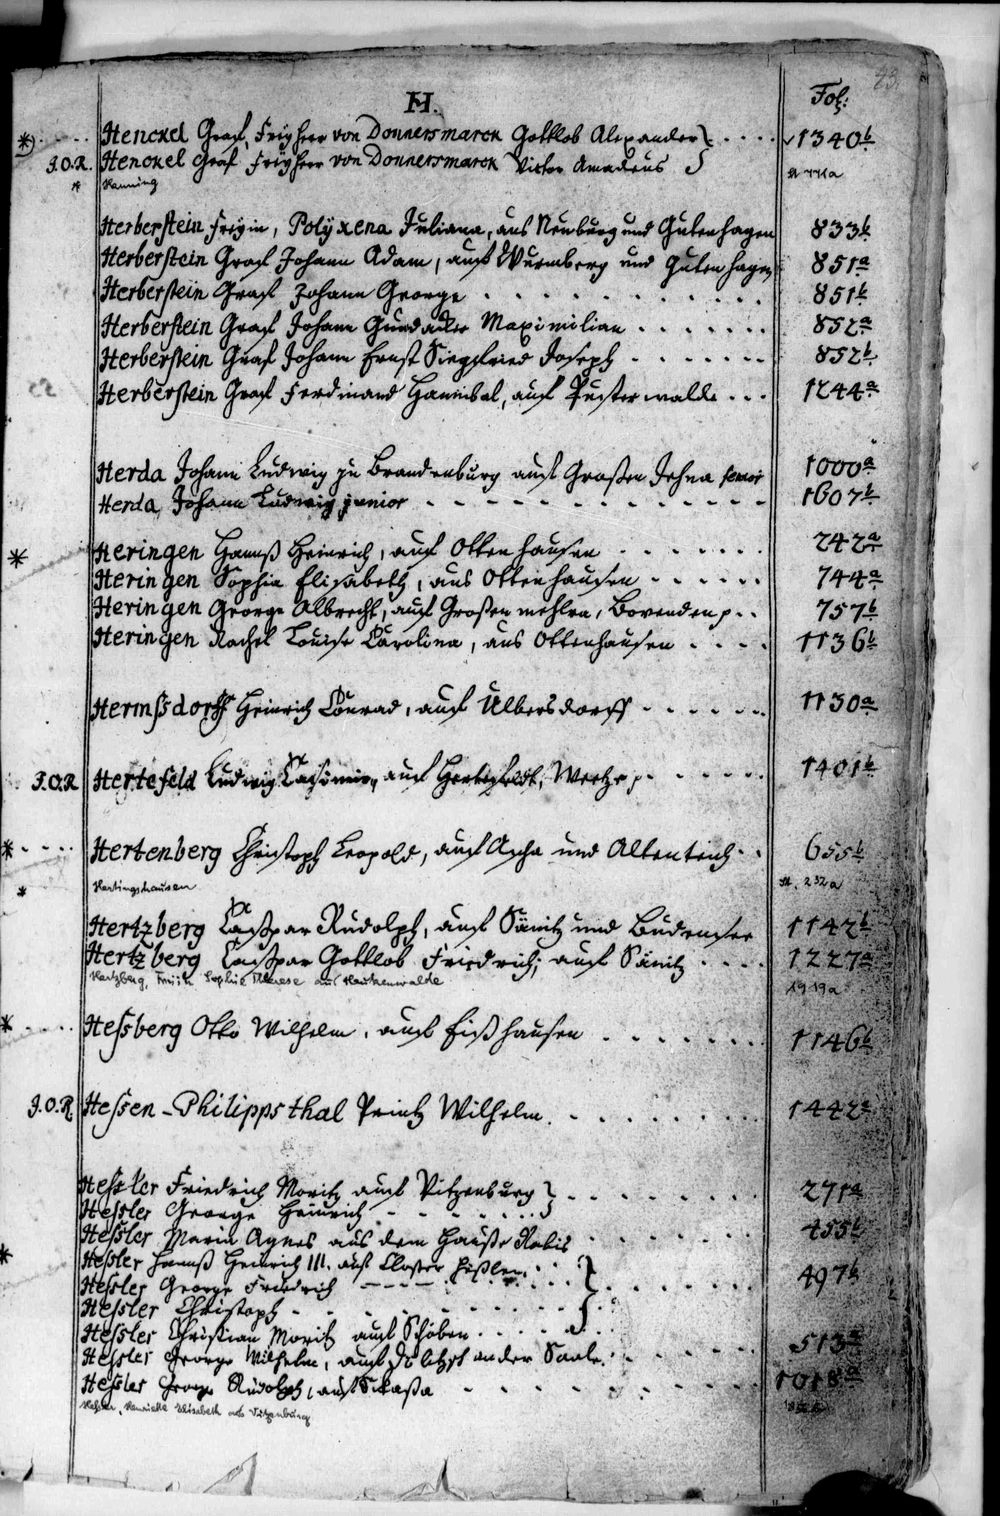 23.
H.
Fol:
*) Henckel Graf, Freyherr von Donnersmarck Gottlob Alexander } 1340b
J.O.R. Henckel Graf Freyherr von Donnersmarck Victor Amadeus }
* Henning a
Herberstein Freyin, Polyxena Juliana, aus Neuburg und Gutenhagen 833b
Herberstein Graf Johann Adam, auf Wurmberg und Gutenhagen 851a
Herberstein Graf Johann George 851b
Herberstein Graf Johann Gundacker Maximilian 852a
Herberstein Graf Johann Ernst Siegfried Joseph 852b
Herberstein Graf Ferdinand Hannibal, auf Pusterwalde 1244a
Herda Johann Ludwig zu Brandenburg auf Großen Jehna senior 1000a
Herda Johann Ludwig junior 1607b
* Heringen Hannß Heinrich, auf Ottenhausen 242a
Heringen Sophia Elisabeth, aus Ottenhausen 744a
Heringen George Albrecht, auf Großen mehlra, Bovenden p. 757b
Heringen Rachel Louise Carolina, aus Ottenhausen 1136b
Hermsdorff Heinrich Conrad, auf Ulbersdorff 1130a
J.O.R Hertefeld Ludwig Casimir, auf Hertefeldt, Weetze p. 1401b
* Hertenberg Christoph Leopold, auf Ascha und Altenteich 655b
* Hertingshausen 232a
Hertzberg Casspar Rudolph, auf Sänitz und Budensee 1142b
Hertzberg Casspar Gottlob Friedrich, auf Sänitz 1227a
Hertzberg, Sophie Therese aus Heukenwalde 1919a
* Hessberg Otto Wilhelm, auf Eißhausen 1146b
J.O.R Hessen-Philippsthal Printz Wilhelm. 1442a
Hessler Friedrich Moritz auf Vitzenburg } 271a
Hessler George Heinrich }
Hessler Maria Agnes aus dem Hause Rabis 455b
* Hessler Hannß Heinrich III. auf Closter Häßler } 497b
Hessler George Friedrich
Hessler Christoph }
Hessler Christian Moritz auf Schöben 513a
Hessler George Wilhelm, auf an der Saale
Hessler George Rudolph, auf 1018a
Hessler, Henriette Elisabeth aus Vitzenburg